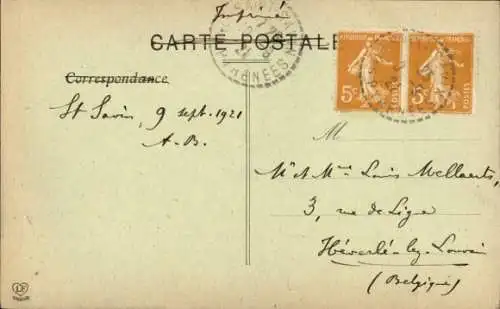 Imprimé
CARTE POSTALE
Correspondance
RÉPUBLIQUE FRANÇAISE
5c
POSTES
5c
POSTES
St Savin, 9 sept. 1921
A.B.
M
Mr et Mme Louis Mellaerts,
3, rue de Ligne
Héverlé-lez-Louvain
(Belgique)